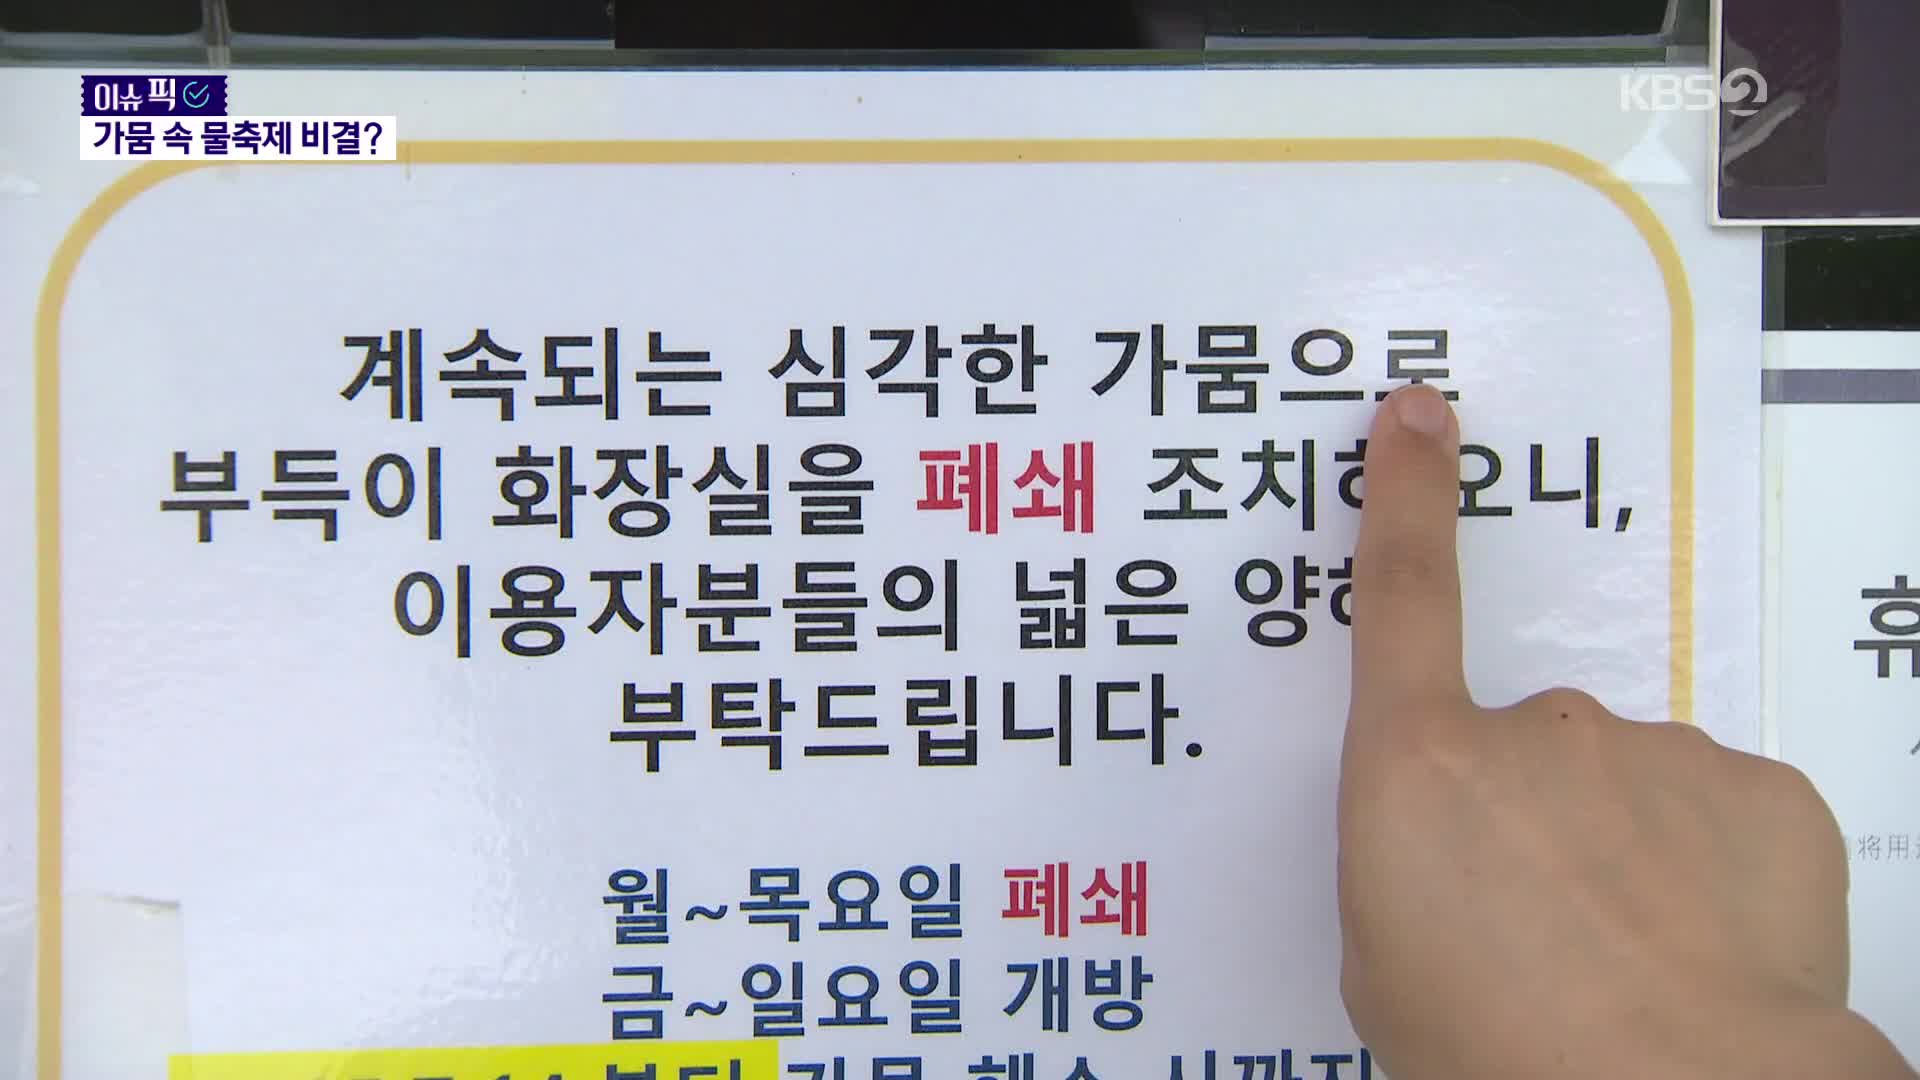 이슈픽
KBS2
가뭄 속 물축제 비결?
계속되는 심각한 가뭄으로
부득이 화장실을 폐쇄 조치하오니,
이용자분들의 넓은
부탁드립니다.
월~목요일 폐쇄
금~일요일 개방
휴
将用